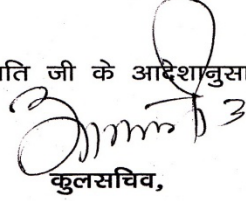 ति जी के आदेशानुसा
कुलसचिव,